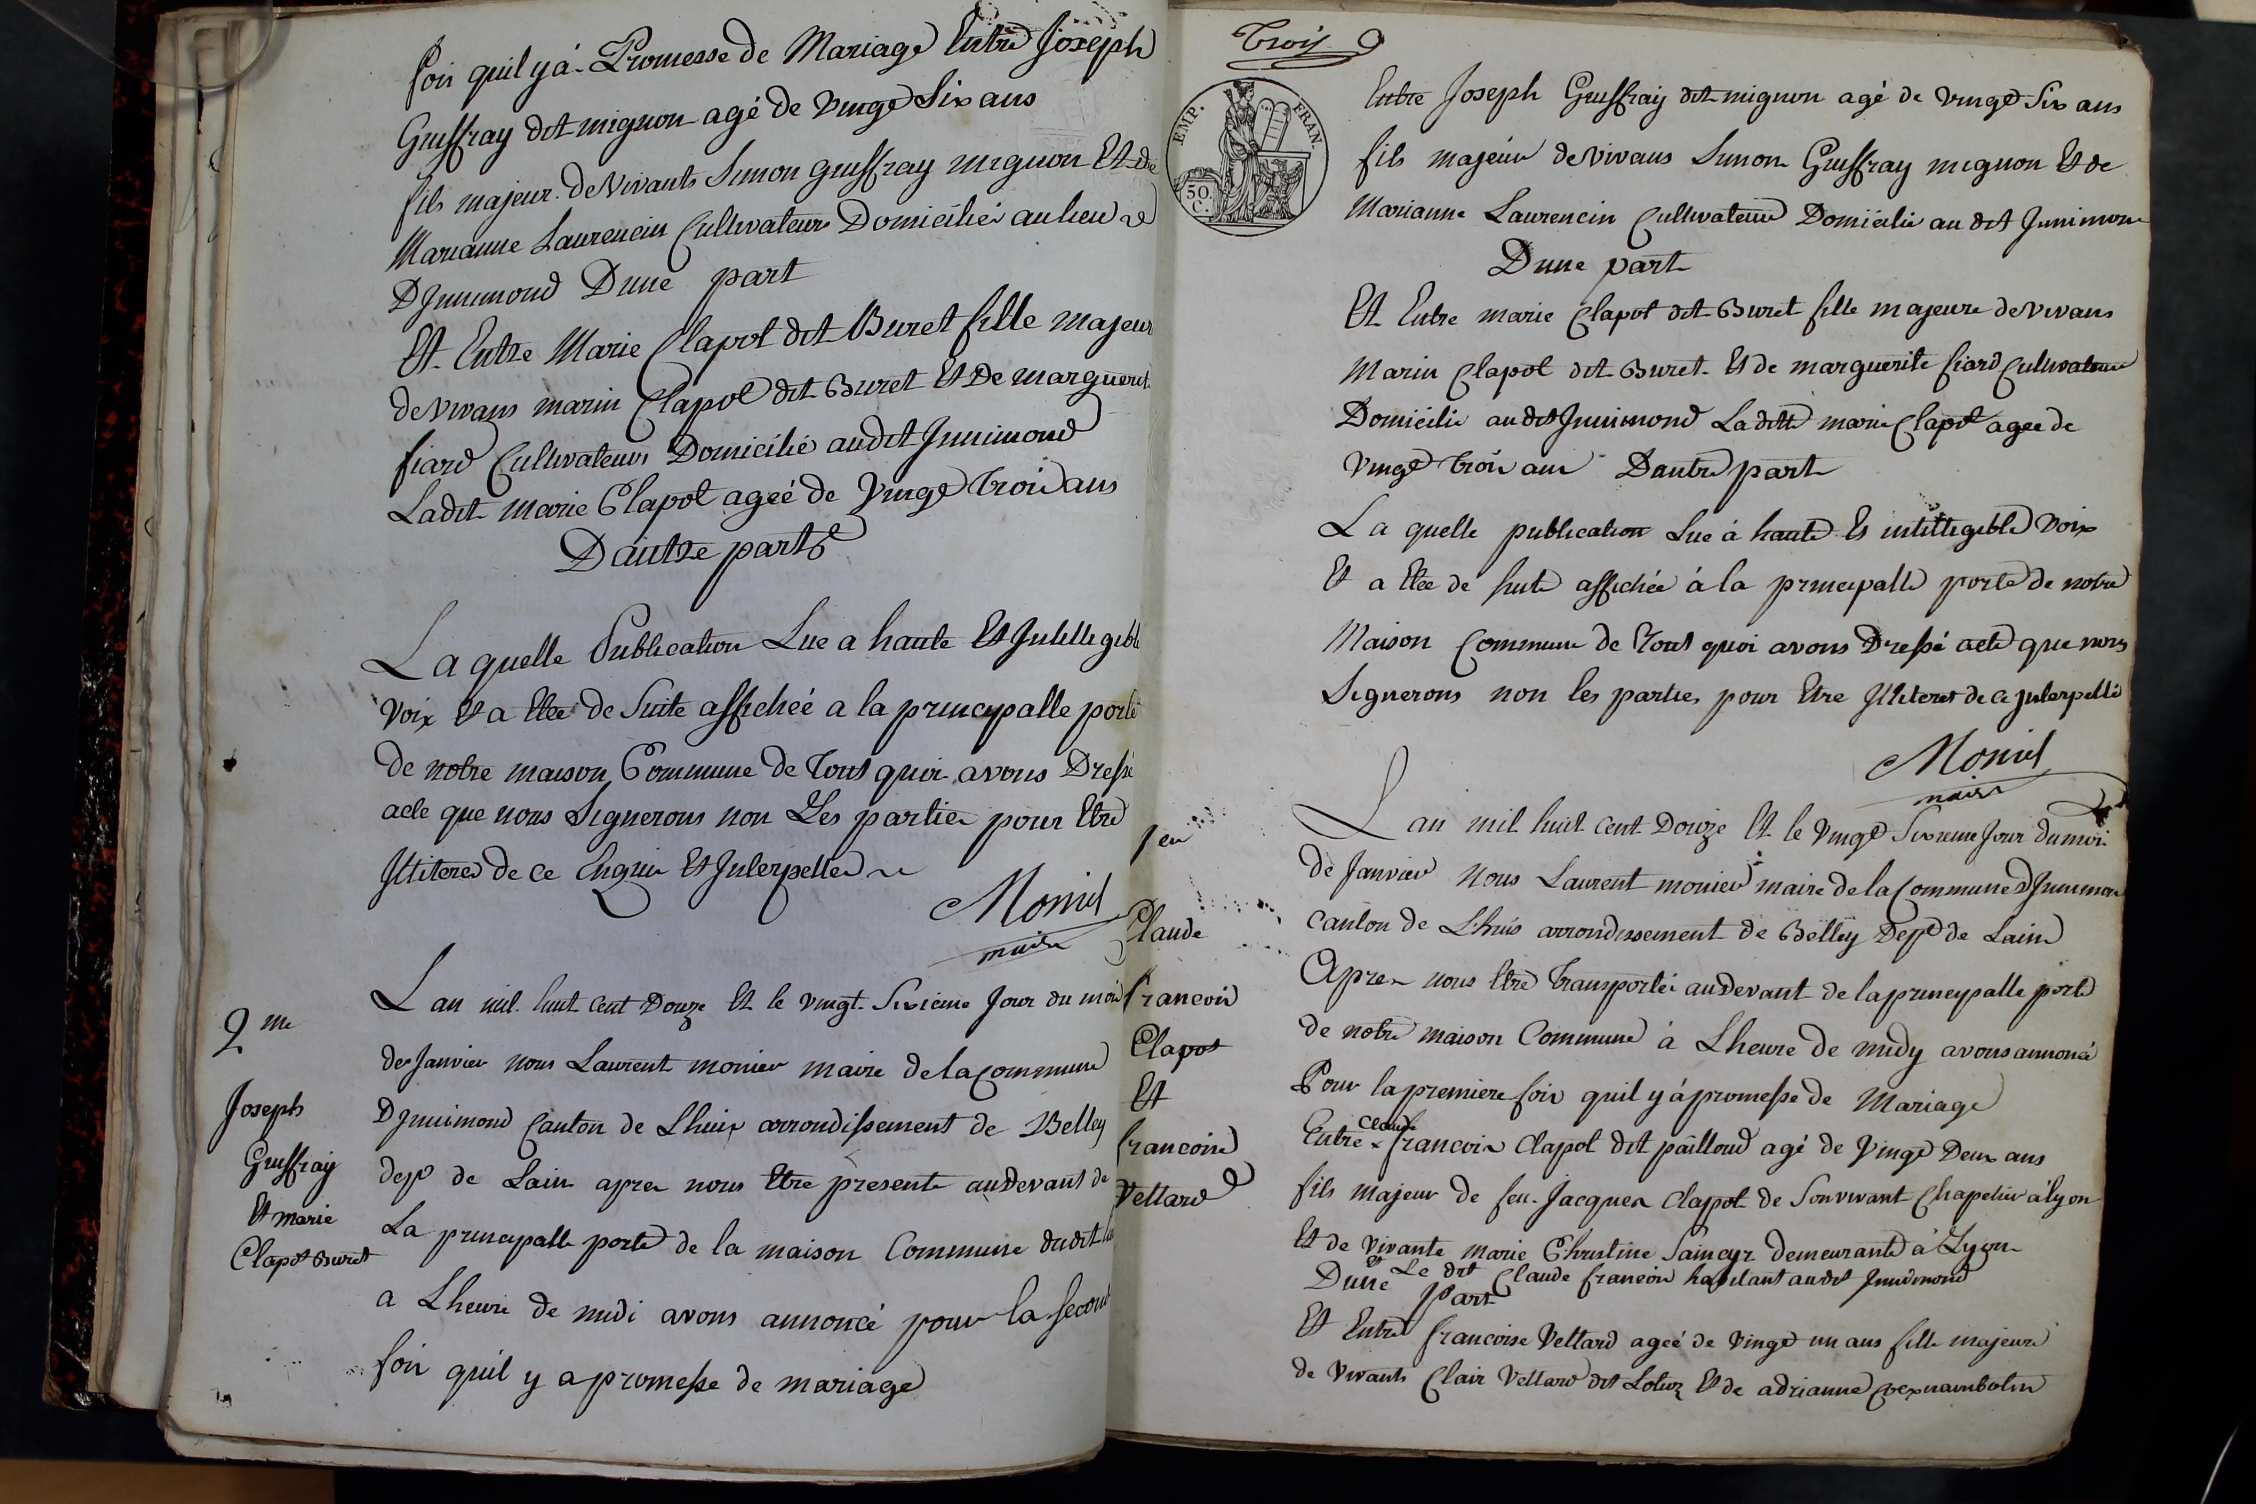 foir quil y á Promesse de Mariage Entre Joseph
Gruffray dit mignon agé de vingt Six ans
fils majeur de vivants Simon gruffray mignon Et de
Marianne Laurencin Cultivateurs Domicilié au lieu d
D Innimond Dune part
Et Entre Marie Clapot dit Buret fille majeur
de vivans marin Clapot dit Buret Et De marguerit
fiard Cultivateurs Domicilié audit Innimond
Ladit marie Clapot ageé de vingt trois ans
Dautre part
La quelle Publication Lue a haute Et Intelligible
voix Et a Etee de Suite affichéé a la principalle porte
de notre maison Commune de Tout quoi avons Dressé
acte que nous Signerons non Les parties pour Etre
Illiteres de ce Enquis Et Interpelles
Moniel
maire
2me
Joseph
Gruffray
Et marie
Clapot Buret
Lan mil huit cent Douze Et le vingt Sixieme Jour du mois
de Janvier nous Laurent monier maire de la Commune
D Innimond Canton de Lhuis arrondissement de Belley
dept de Lain apres nous Etre presente audevant de
La principalle porte de la maison Commune dudit lieu
a Lheure de midi avons annoncé pour la second
foir quil y a promesse de mariage
Trois
EMP. FRAN.
50 C.
Entre Joseph Gruffray dit mignon agé de vingt Six ans
fils majeur de vivans Simon Gruffray mignon Et de
Marianne Laurencin Cultivateur Domicilié au dit Innimon
Dune part
Et Entre marie Clapot dit Buret fille majeure de vivans
Marin Clapot dit Buret Et de marguerite fiard Cultivateur
Domicilié audit Innimond Laditte marie Clapot agee de
vingt trois ans Dautre part
La quelle publication Lue à haute Et intelligible voix
Et a Etee de suite affichée à la principalle porte de notre
Maison Commune de Tout quoi avons Dressé acte que nous
Signerons non les parties pour Etre Illiteres de ce Interpellé
Moniel
maire
1er
Claude
francois
Clapot
Et
francoise
Vettard
Lan mil huit cent Douze Et le vingt Sixieme Jour du mois
de Janvier Nous Laurent monier maire de la Commune d Innimon
Canton de Lhuis arrondissement de Belley Dept de Lain
Apres nous Etre Transporté audevant de la principalle porte
de notre maison Commune à Lheure de midy avons annoncé
Pour la premiere foir quil y á promesse de Mariage
Entre Claude francois Clapot dit pailloud agé de vingt Deux ans
fils majeur de feu Jacques Clapot de Son vivant Chapelier à lyon
Et de vivante marie Christine Saincyr demeurante à Lyon
Et Le dit Claude francois habitant audit Innimond
Dune Part
Et Entre francoise Vettard ageé de vingt un ans fille majeure
de vivants Clair Vettard dit Lotoz Et de adrianne